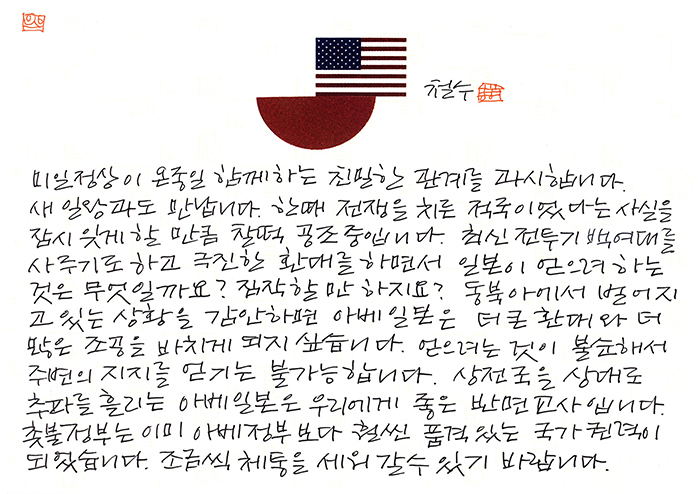 철수
미일정상이 온종일 함께하는 친밀한 관계를 과시합니다.
새 일왕과도 만납니다. 한때 전쟁을 치른 적국이었다는 사실을
잠시 잊게 할 만큼 찰떡 공조중입니다. 최신 전투기 백여대를
사주기도 하고 극진한 환대를 하면서 일본이 얻으려 하는
것은 무엇일까요? 짐작할 만 하지요? 동북아에서 벌어지
고 있는 상황을 감안하면 아베일본은 더 큰 환대와 더
많은 조공을 바치게 되지 싶습니다. 얻으려는 것이 불순해서
주변의 지지를 얻기는 불가능합니다. 상전국을 상대로
추파를 흘리는 아베일본은 우리에게 좋은 반면교사입니다.
촛불정부는 이미 아베정부보다 훨씬 품격있는 국가권력이
되었습니다. 조금씩 체통을 세워 갈 수 있기 바랍니다.